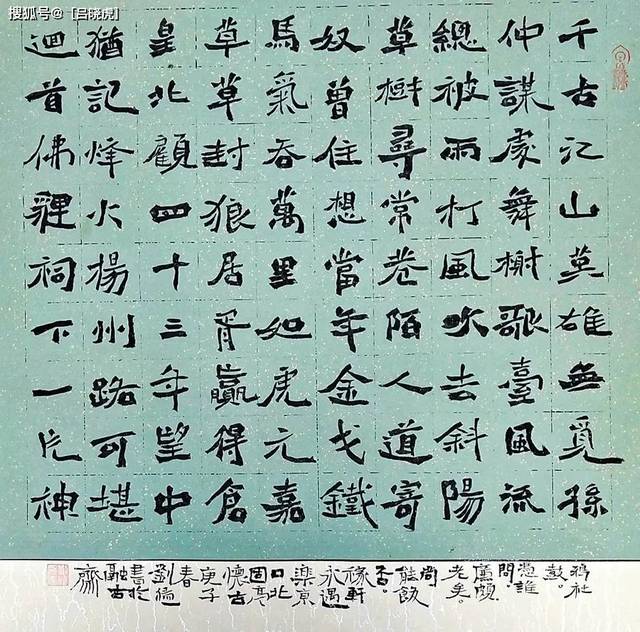 搜狐号@[吕晓虎]
千古江山英雄無覓孫
仲謀處舞榭歌臺風流
總被雨打風吹去斜陽
草樹尋常巷陌人道寄
奴曾住想當年金戈鐵
馬氣吞萬里如虎元嘉
草草封狼居胥贏得倉
皇北顧四十三年望中
猶記烽火楊州路可堪
迴首佛貍祠下一片神
鴉社
鼓。
憑誰
問。
廉頗
老矣。
尚
能飯
否。
稼軒
永遇
樂京
口北
固亭
懷古
庚子
春
劉
書於
融古
齋